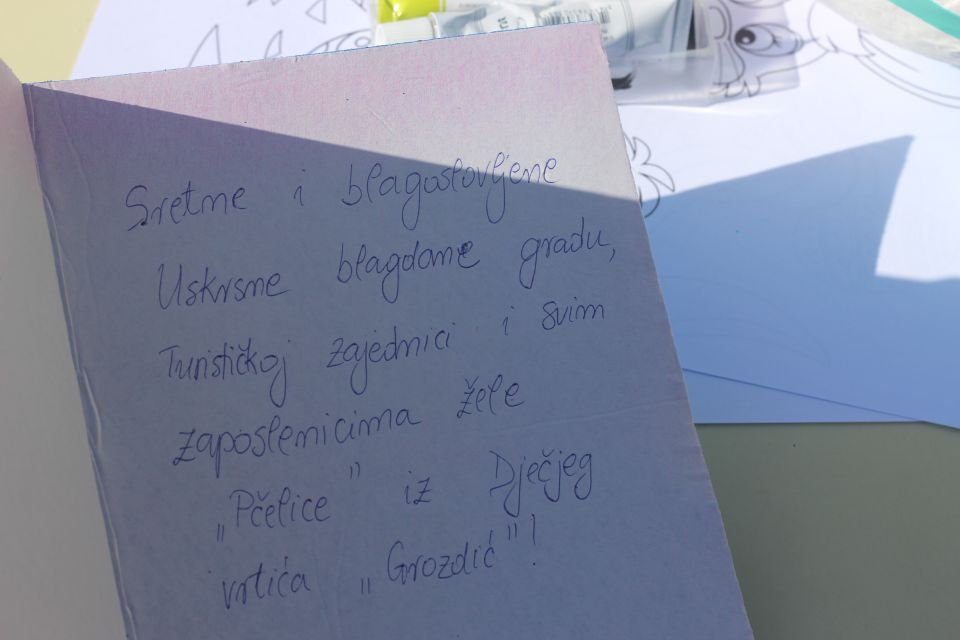 Sretne i blagoslovljene
Uskrsne blagdane gradu,
Turističkoj zajednici i svim
zaposlenicima žele
„Pčelice" iz Dječjeg
vrtića „Grozdić"!